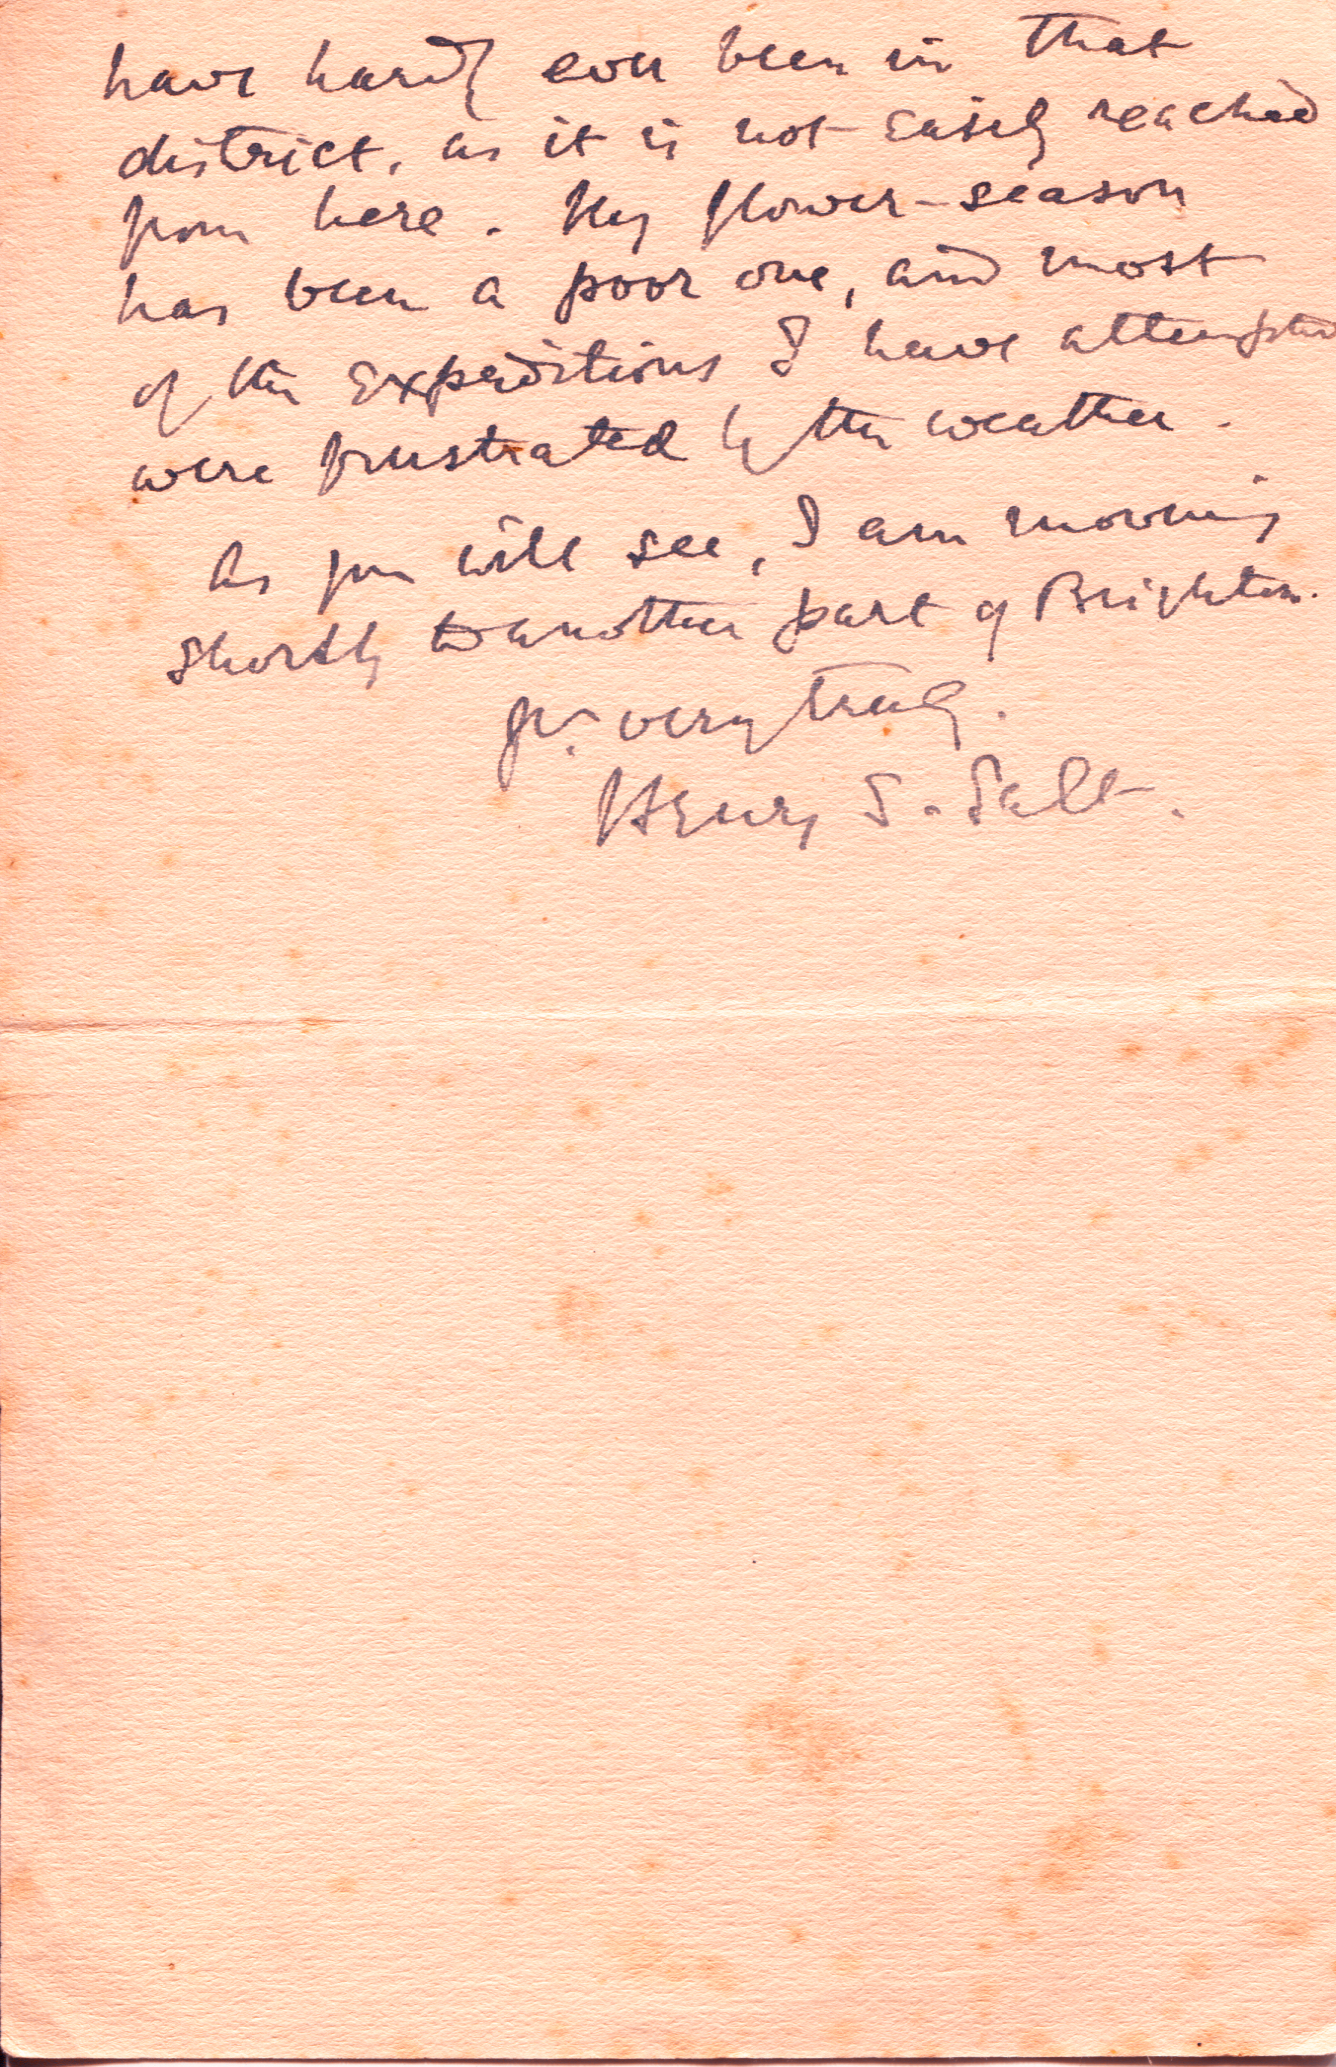 have hardly ever been in that
district, as it is not easily reached
from here. My flower-season
has been a poor one, and most
of the expeditions I have attempted
were frustrated by the weather.
As you will see, I am moving
shortly to another part of Brighton.
Yrs. very truly.
Henry S. Salt.